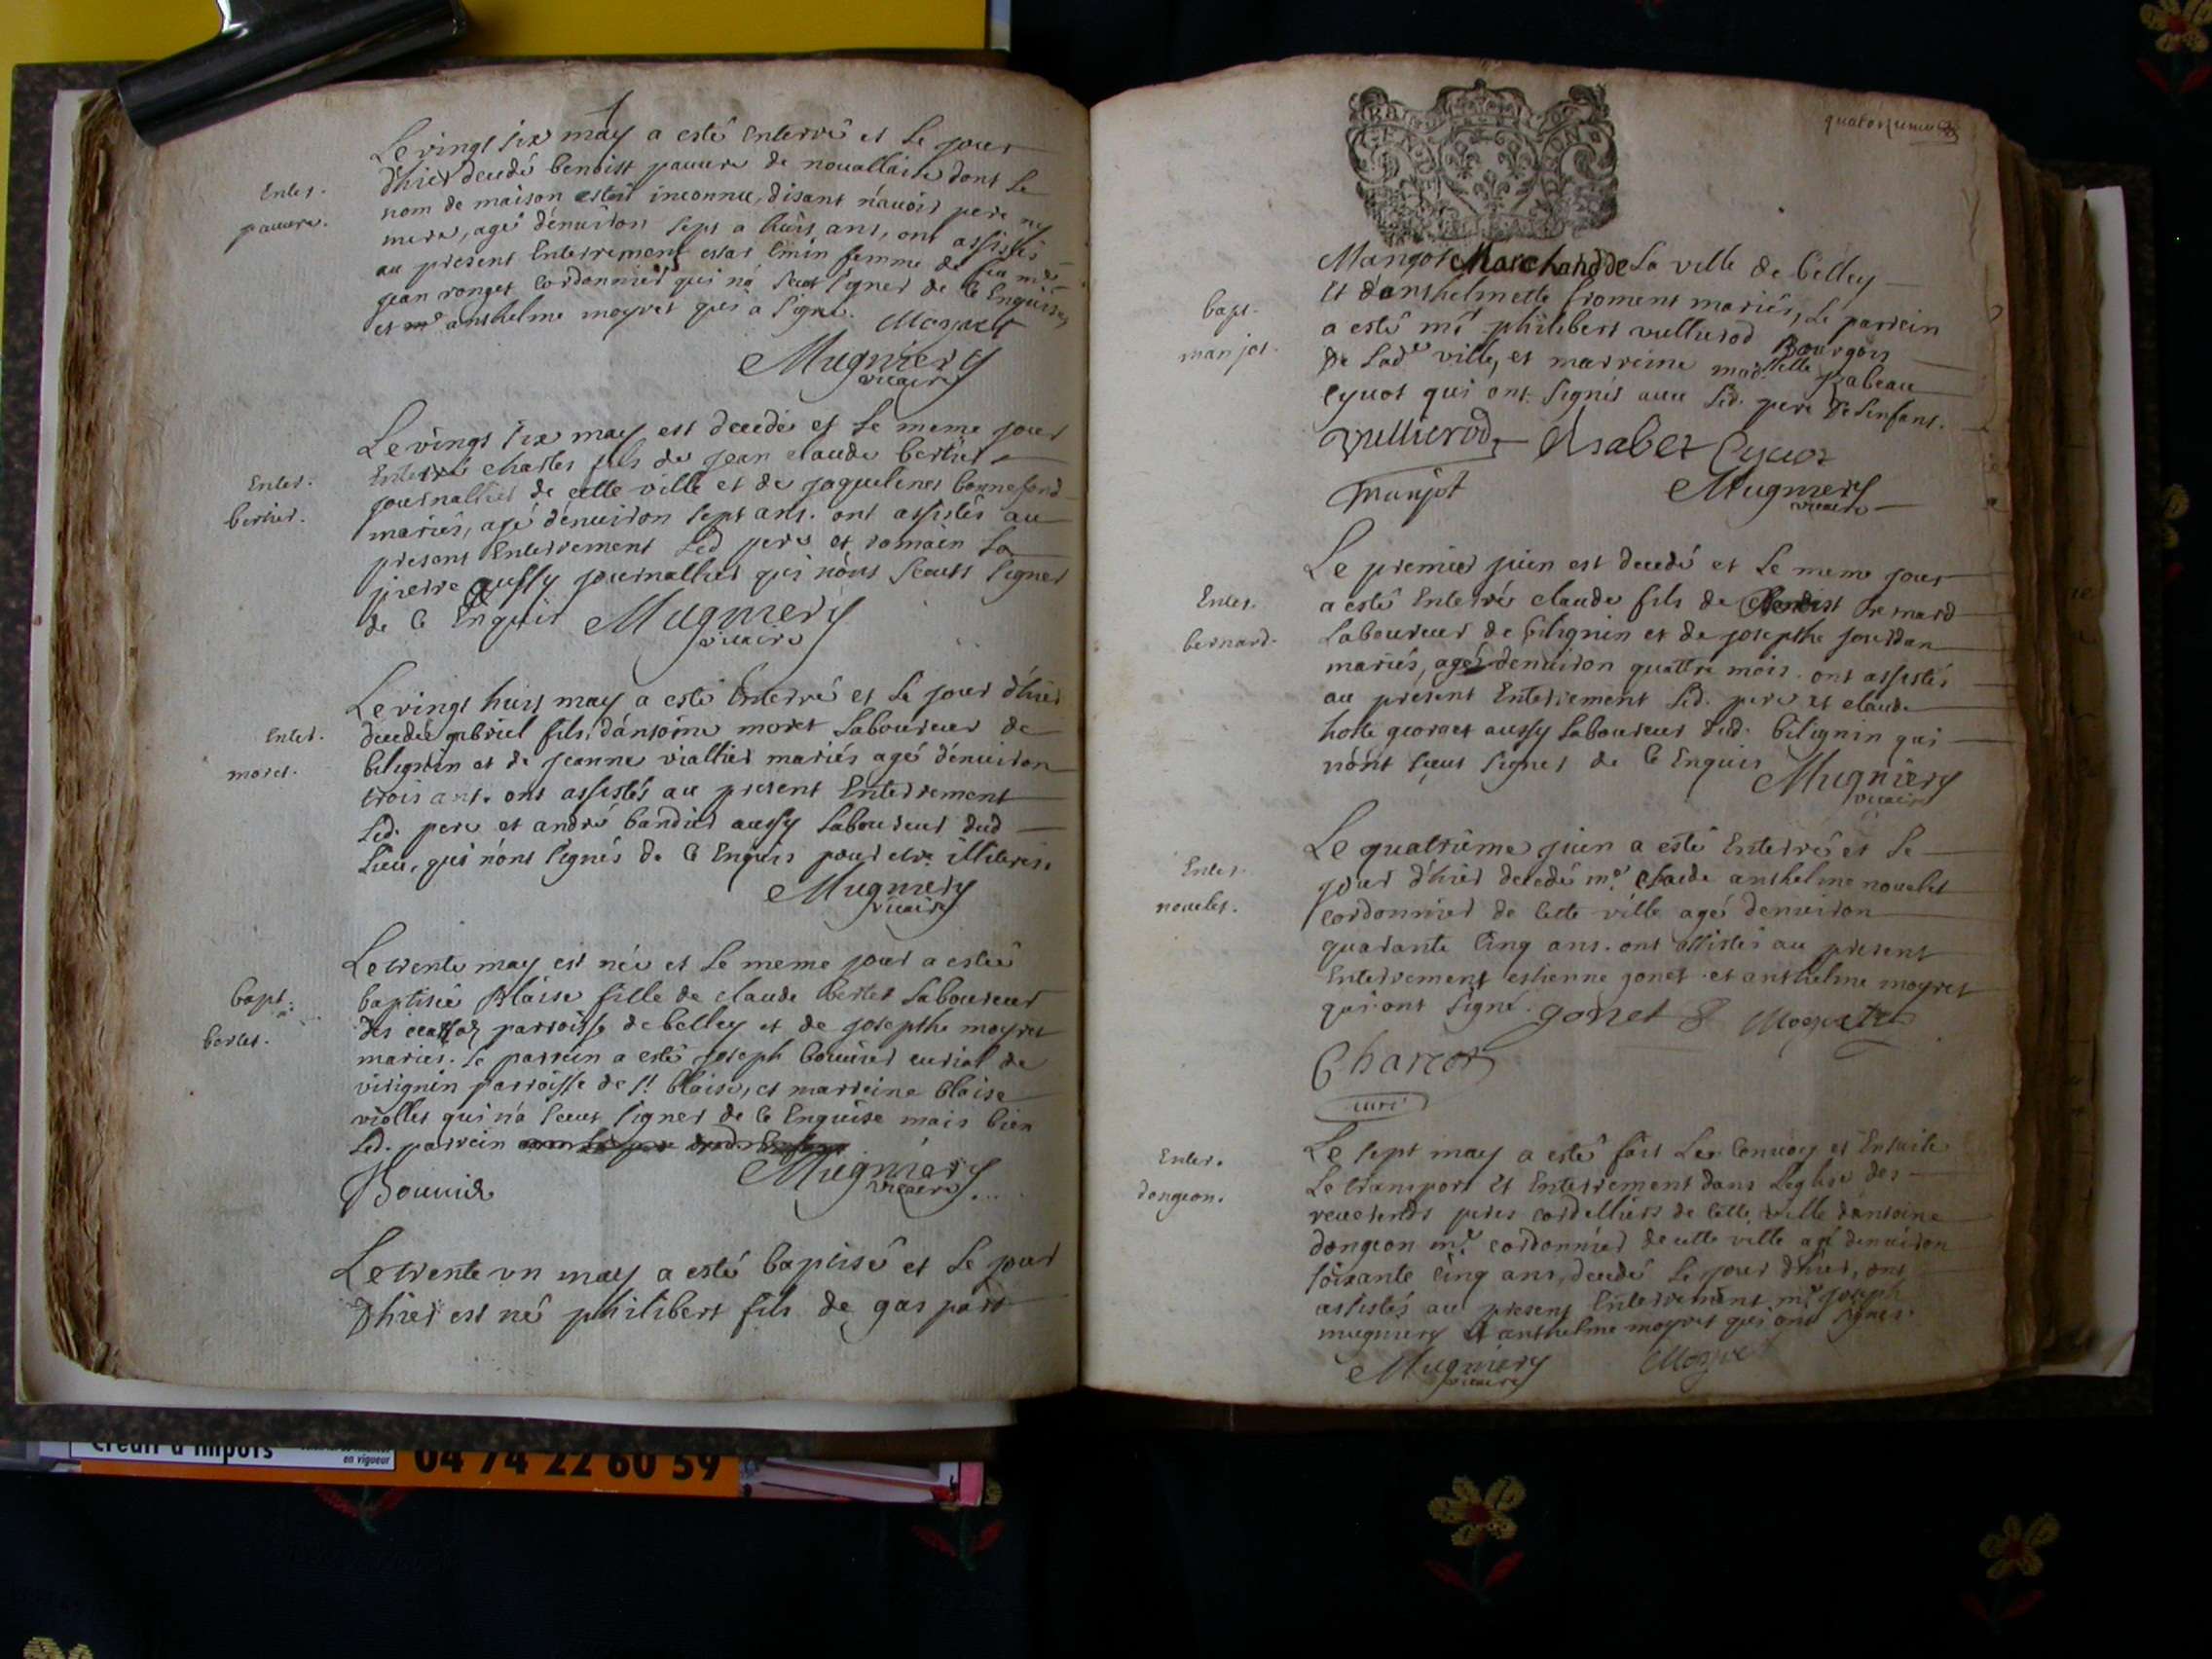 Le vingt six may a esté Enterré et Le jour
d'hier decedé benoist pauure de nouallaise dont Le
nom de maison estoit inconnu, disant n'auoir pere ny
mere, agé d'enuiron sept a huit ans, ont assistés
au present Enterrement estas Emin femme de feu me
jean ronget Cordonnier qui n'a sceut signer de ce Enquise,
et me anthelme moyret qui a signé. Moyret
Enter.
pauure.
Mugniery
vicaire
Le vingt six may est decedé et Le meme jour
Enterré charles fils de jean claude bertier
journallier de cette ville et de jaqueline bonnefond
mariés, agé d'enuiron sept ans. ont assistés au
present Enterrement Led. pere et romain La
pierre aussy journallier qui n'ont sceuts signer
de ce Enquis Mugniery
vicaire
Enter.
bertier.
Le vingt huit may a esté Enterré et Le jour d'hier
decedé gabriel fils d'antoine moret Laboureur de
bilignin et de jeanne viallier mariés agé d'enuiron
trois ans. ont assistés au present Enterrement
Led. pere et andré bandier aussy Laboureur dud
Lieu, qui n'ont signés de ce Enquis pour etre illiteres.
Mugniery
vicaire
Enter.
moret.
Le trente may est née et Le meme jour a estée
baptisée blaise fille de claude bertet Laboureur
des parroisse de belley et de josepthe moyret
mariés. Le parrein a esté joseph bouuier curial de
virignin parroisse de st. blaise, et marreine blaise
viollet qui n'a sceut signer de ce Enquise mais bien
Led. parrein
Bouuier Mugniery
vicaire
bapt.
bertet.
Le trente vn may a esté baptisé et Le jour
d'hier est né philibert fils de gaspard
quatorzieme
GEN
Mangot Marchand de La ville de belley
Et d'anthelmette froment mariés, Le parrein
a esté me philibert vullierod Bourgois
De Lade ville, et marreine madelle isabeau
Cyuot qui ont signés auec Led. pere De L'enfant.
Vullierod Isabet Cyuot
manjot Mugniery
vicaire
bapt.
manjot.
Le premier juin est decedé et Le meme jour
a esté Enterré claude fils de Benoist bernard
Laboureur de bilignin et de josepthe jourdan
mariés, agé d'enuiron quattre mois. ont assistés
au present Enterrement Led. pere et claude
hotte georget aussy Laboureur dud. bilignin qui
n'ont sceut signer de ce Enquis Mugniery
vicaire
Enter.
bernard.
Le quatrieme juin a esté Enterré et Le
jour d'hier decedé me claude anthelme nouelet
cordonnier de Cette ville agé d'enuiron
quarante Cinq ans. ont assistés au present
Enterrement estienne gonet et anthelme moyret
qui ont signé. gonet Moyret
Charcot
curé
Enter.
nouelet.
Le sept may a esté fait Le Conuoy et Ensuite
Le transport et Enterrement dans L'eglise des
reuerends peres cordelliers de Cette ville d'antoine
dongeon me cordonnier de cette ville agé d'enuiron
soixante Cinq ans, decedé Le jour d'hier, ont
assistés au present Enterrement me joseph
mugniery et anthelme moyret qui ont signés.
Mugniery Moyret
vicaire
Enter.
dongeon.
Crédit d'impôts
en vigueur
04 74 22 60 59